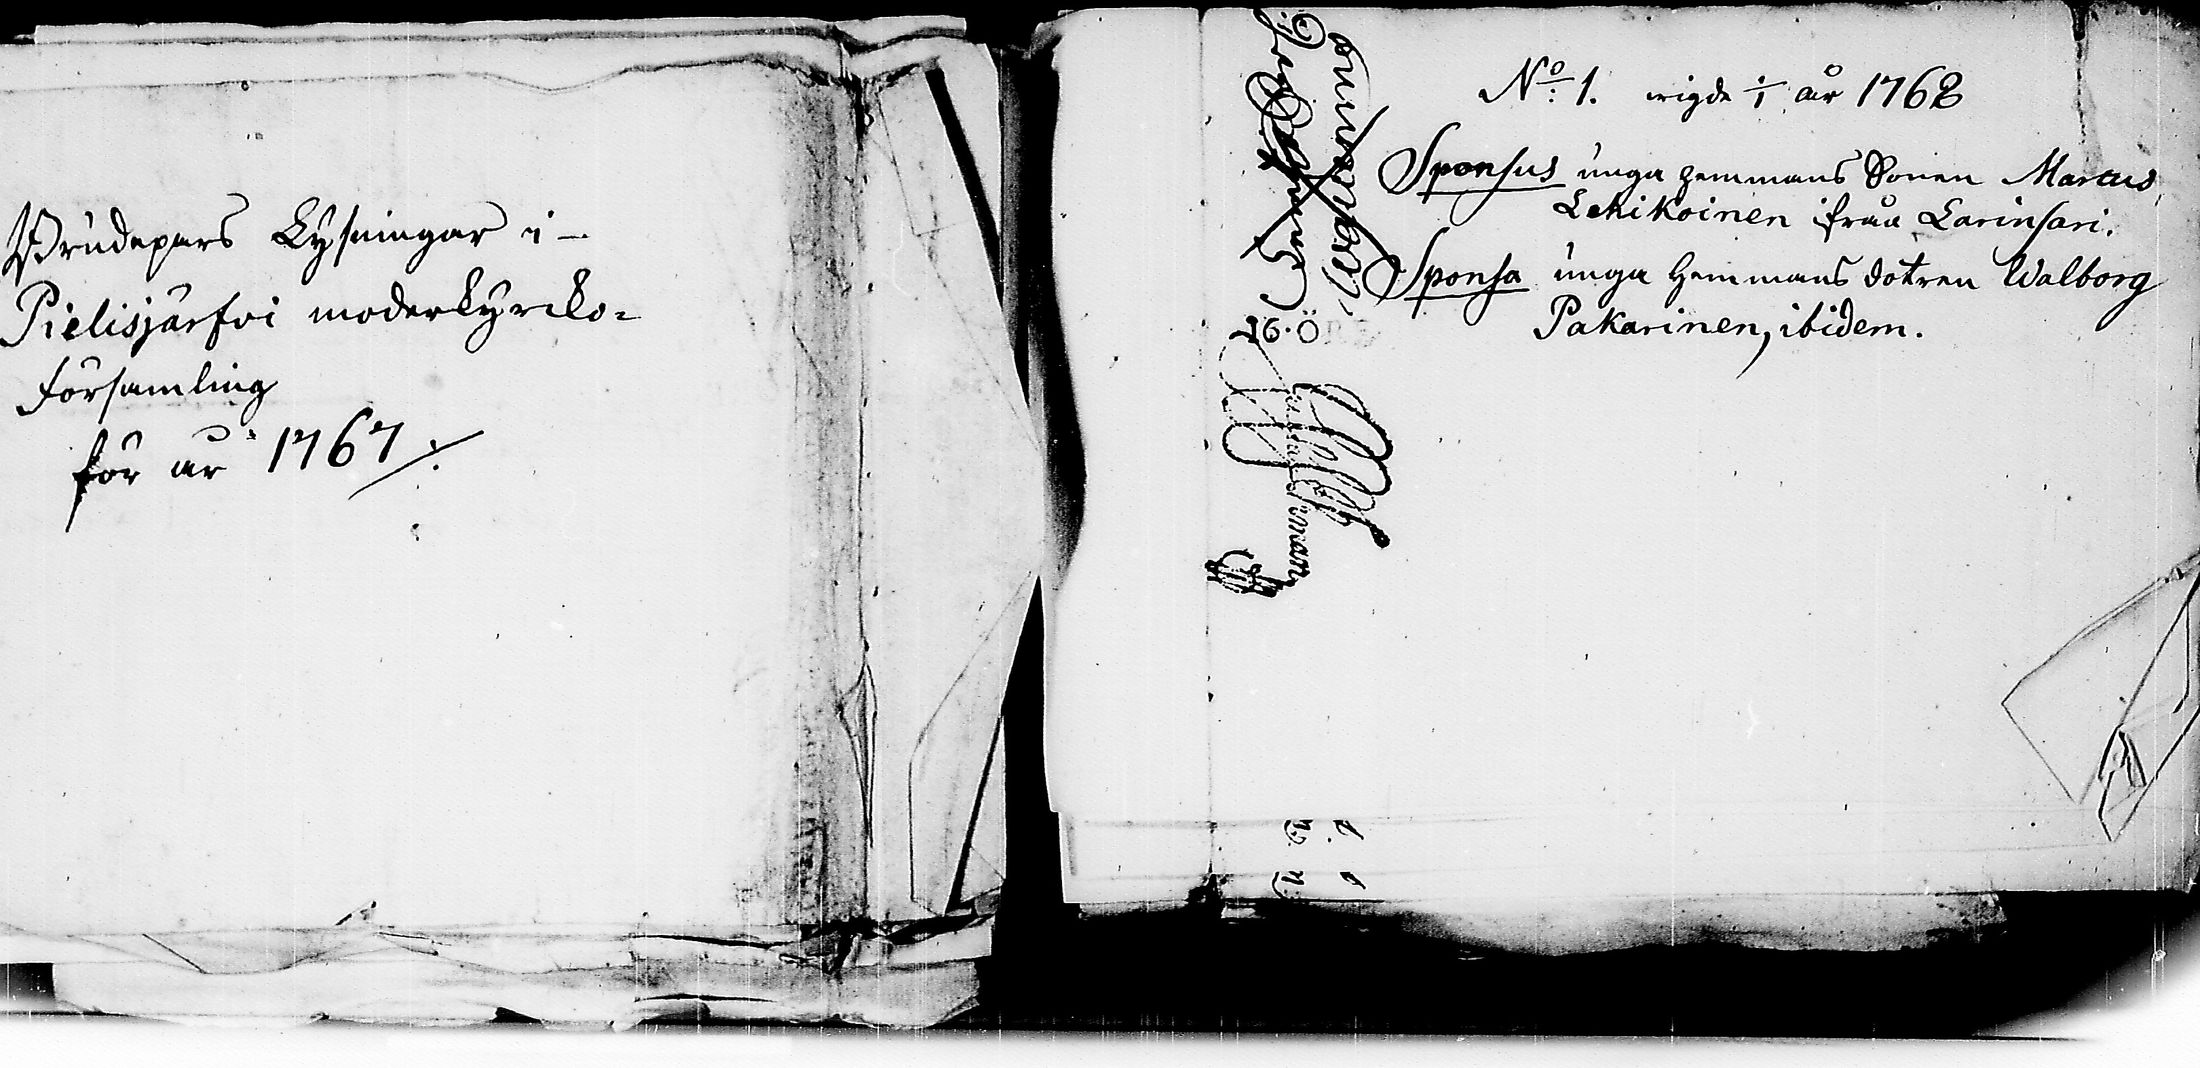 Brudepars Lysningar i
Pielisjärfvi moderkyrko-
församling
för år 1767 ./.
No: 1. vigde 1/1 år 1768
Sponsus unga hemmans Sonen Marcus
Lehikoinen ifrån Larinsari.
Sponsa unga Hemmans dotren Walborg
Pakarinen, ibidem.
16. ÖRE